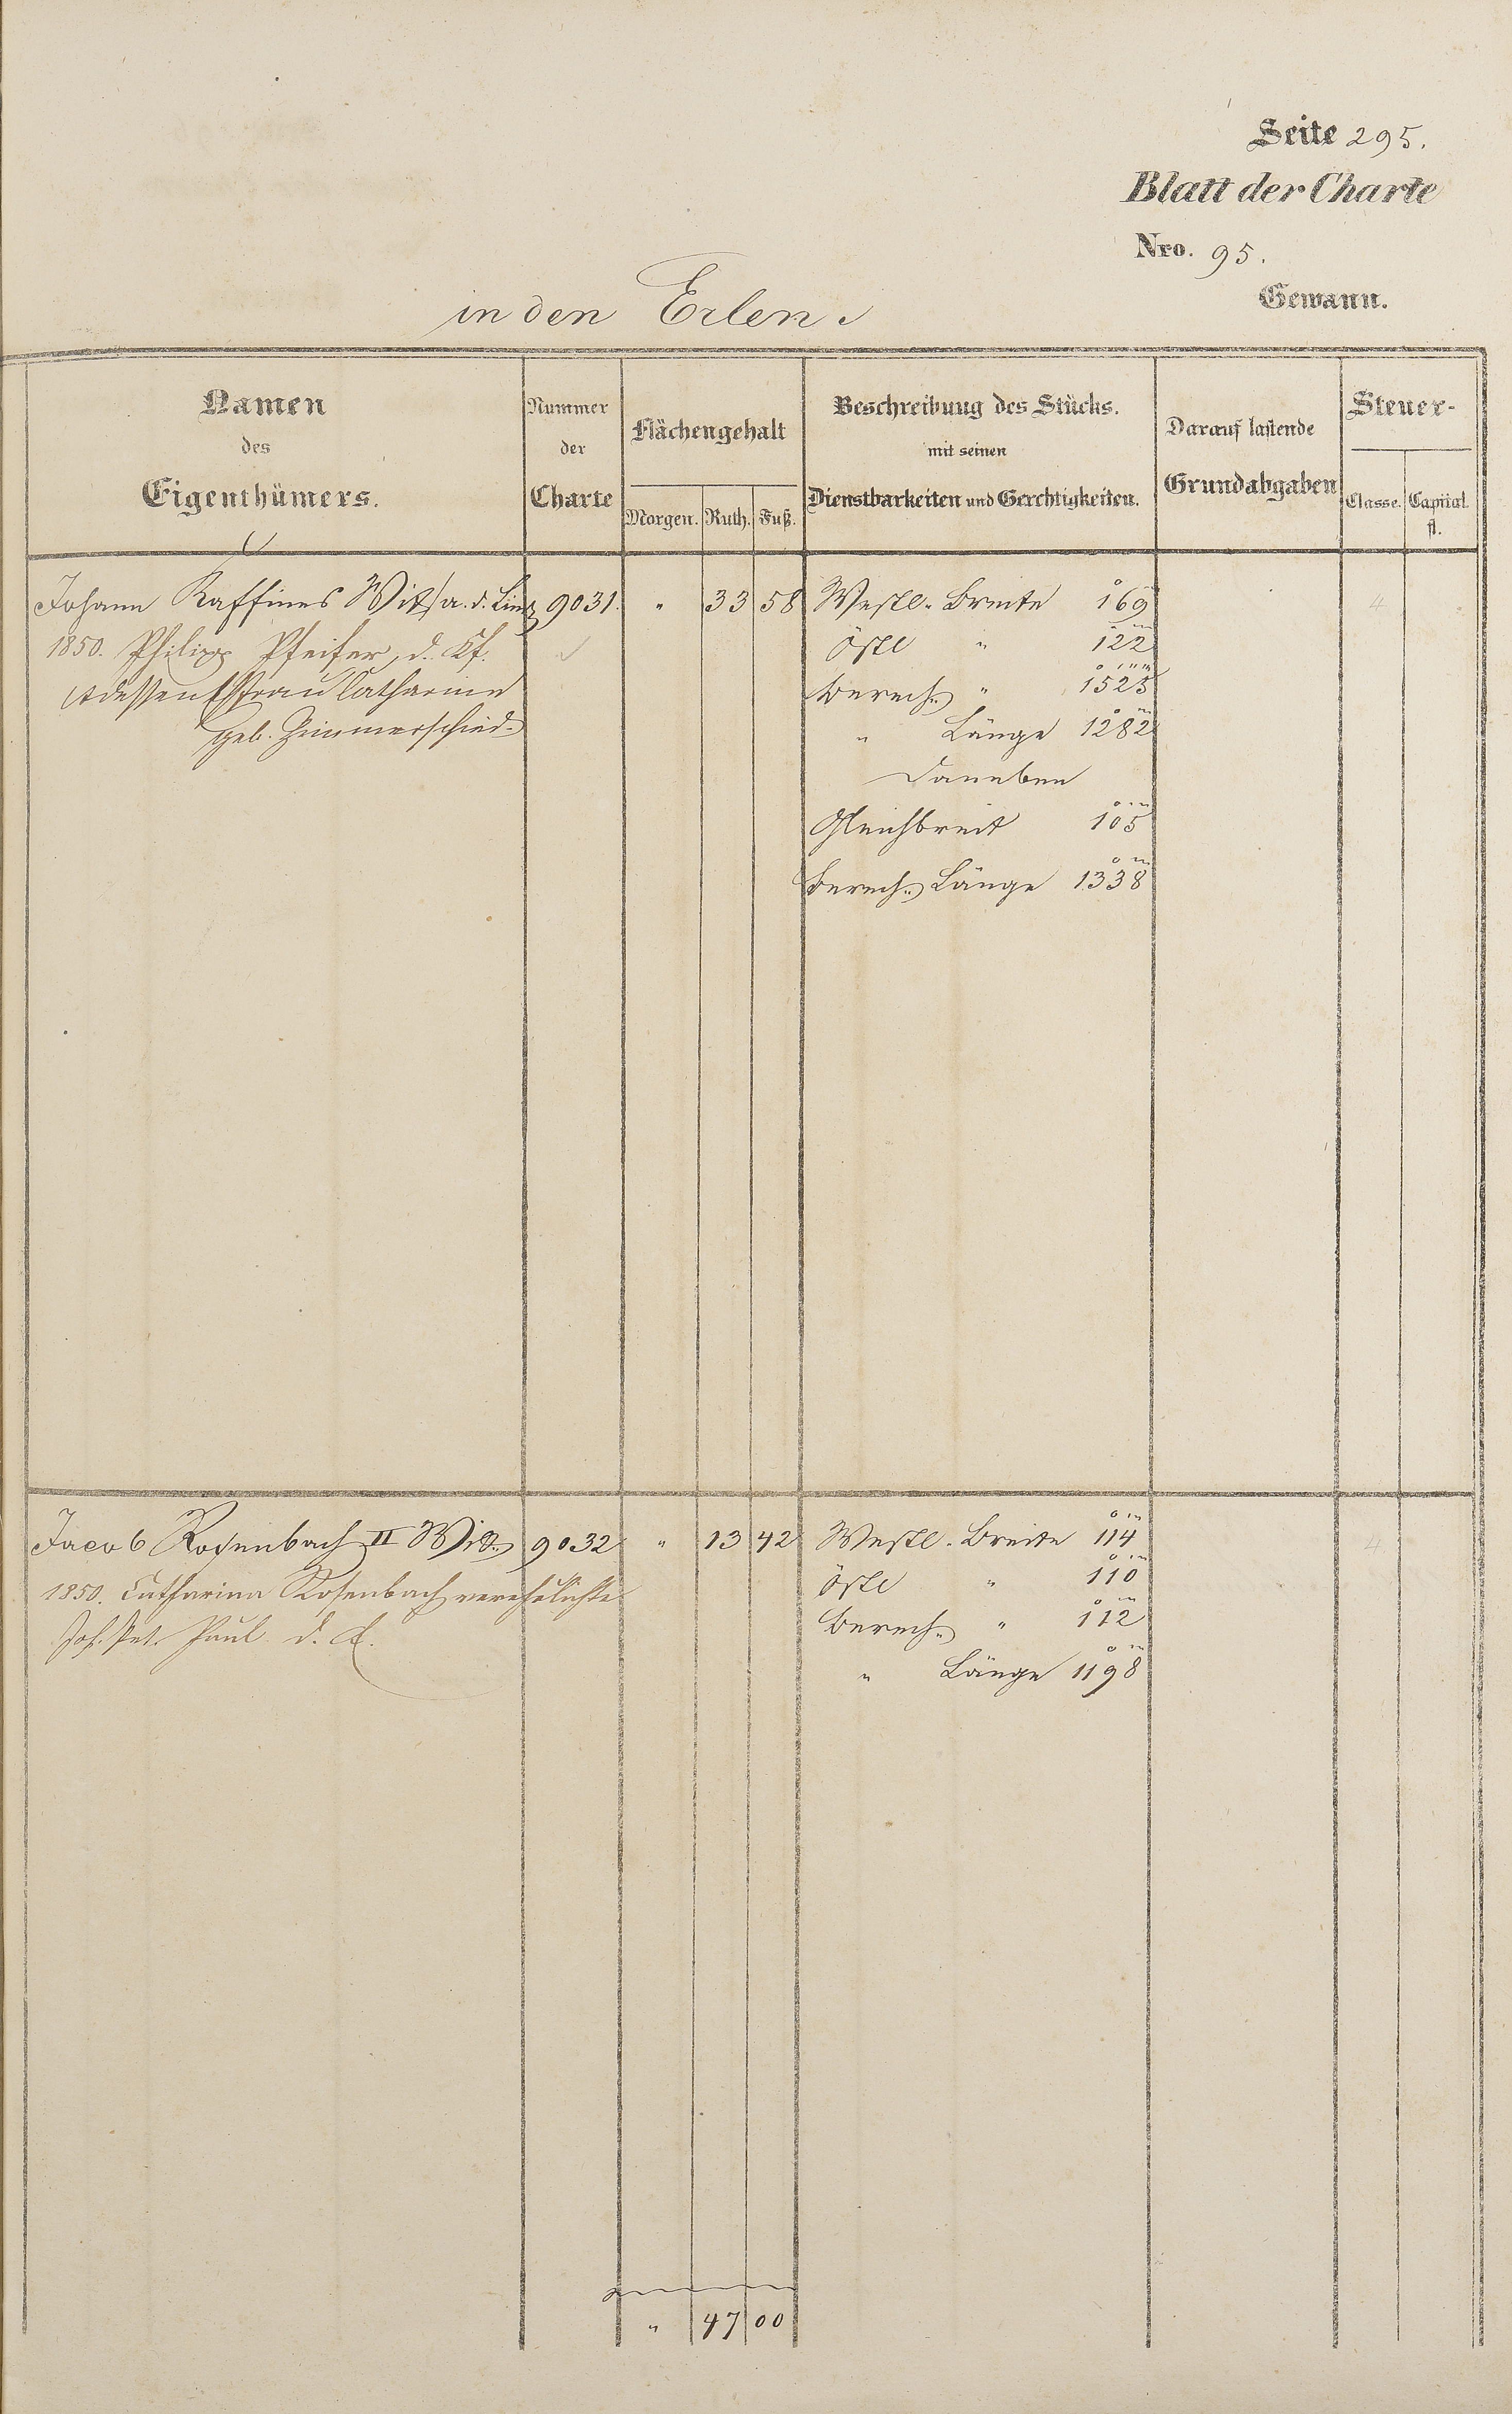 Seite 295.
Blatt der Charte
Nro. 95.
Gewann.
in den Erlen.
Namen
des
Eigenthümers.
Nummer
der
Charte
Flächengehalt
Morgen. Ruth. Fuß.
Beschreibung des Stücks.
mit seinen
Dienstbarkeiten und Gerechtigkeiten.
Darauf lastende
Grundabgaben
Steuer-
Classe. Capital.
fl.
Johann Kaffines Witt. a. d. 9031. " 33 58 Westl. Breite 169
1850. Philipp Pfeifer, d. Kf. Östl " 122
dessen Ehfrau Catharina Berech. " 1525
geb. Zimmerschied. " Länge 1282
Daneben
Gleichbreit 105
Berech. Länge 1338
4
Jacob Rosenbach II Witt. 9032 " 13 42 Westl. Breite 114
4
1850. Catharina Rosenbach, verehelichte Östl " 110
Joh. Pet. Paul d. Berech. " 112
" Länge 1198
" 47 00